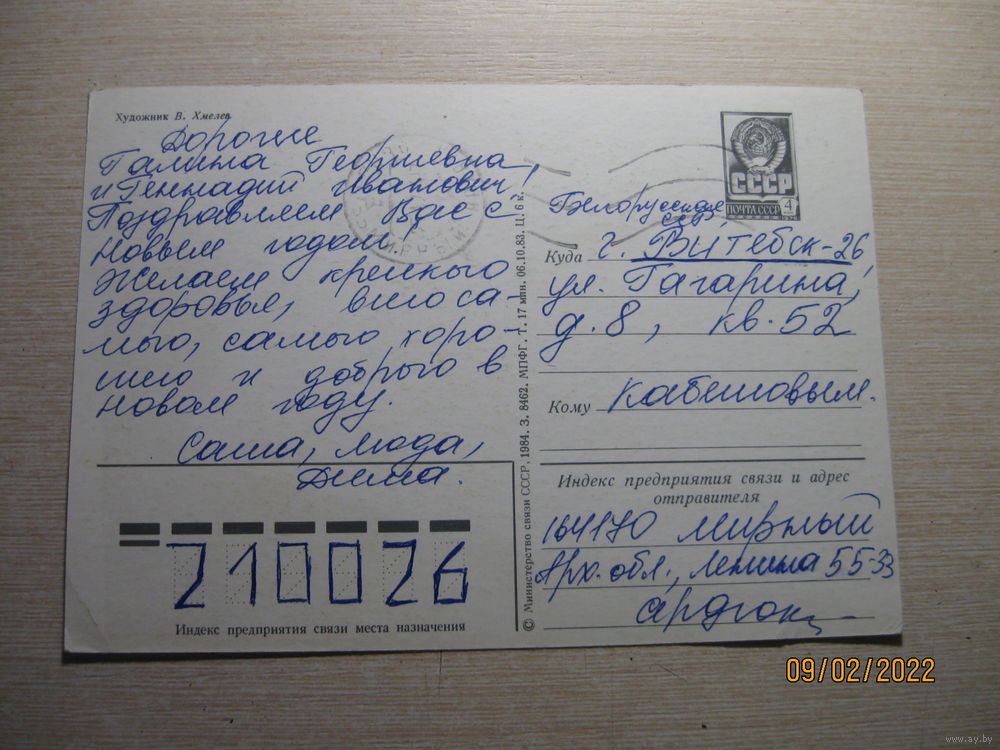 Художник В. Хмелев
Дорогие
Галина Георгиевна
и Геннадий Иванович!
Поздравляем Вас с
Новым годом!
Желаем крепкого
здоровья, всего са-
мого, самого хоро-
шего и доброго в
новом году.
Саша, Люда,
Дима.
210026
Индекс предприятия связи места назначения
© Министерство связи СССР. 1984. З. 8462. МПФГ. Т. 17 млн. 06.10.83. Ц. 6 к.
СССР
ПОЧТА СССР 4
Белорусская
ССР
Куда г. Витебск-26
ул. Гагарина,
д. 8, кв. 52
Кому Кабешовым.
Индекс предприятия связи и адрес
отправителя
164170 Мирный
Арх. обл., Ленина 55-33
09/02/2022
www.ay.by